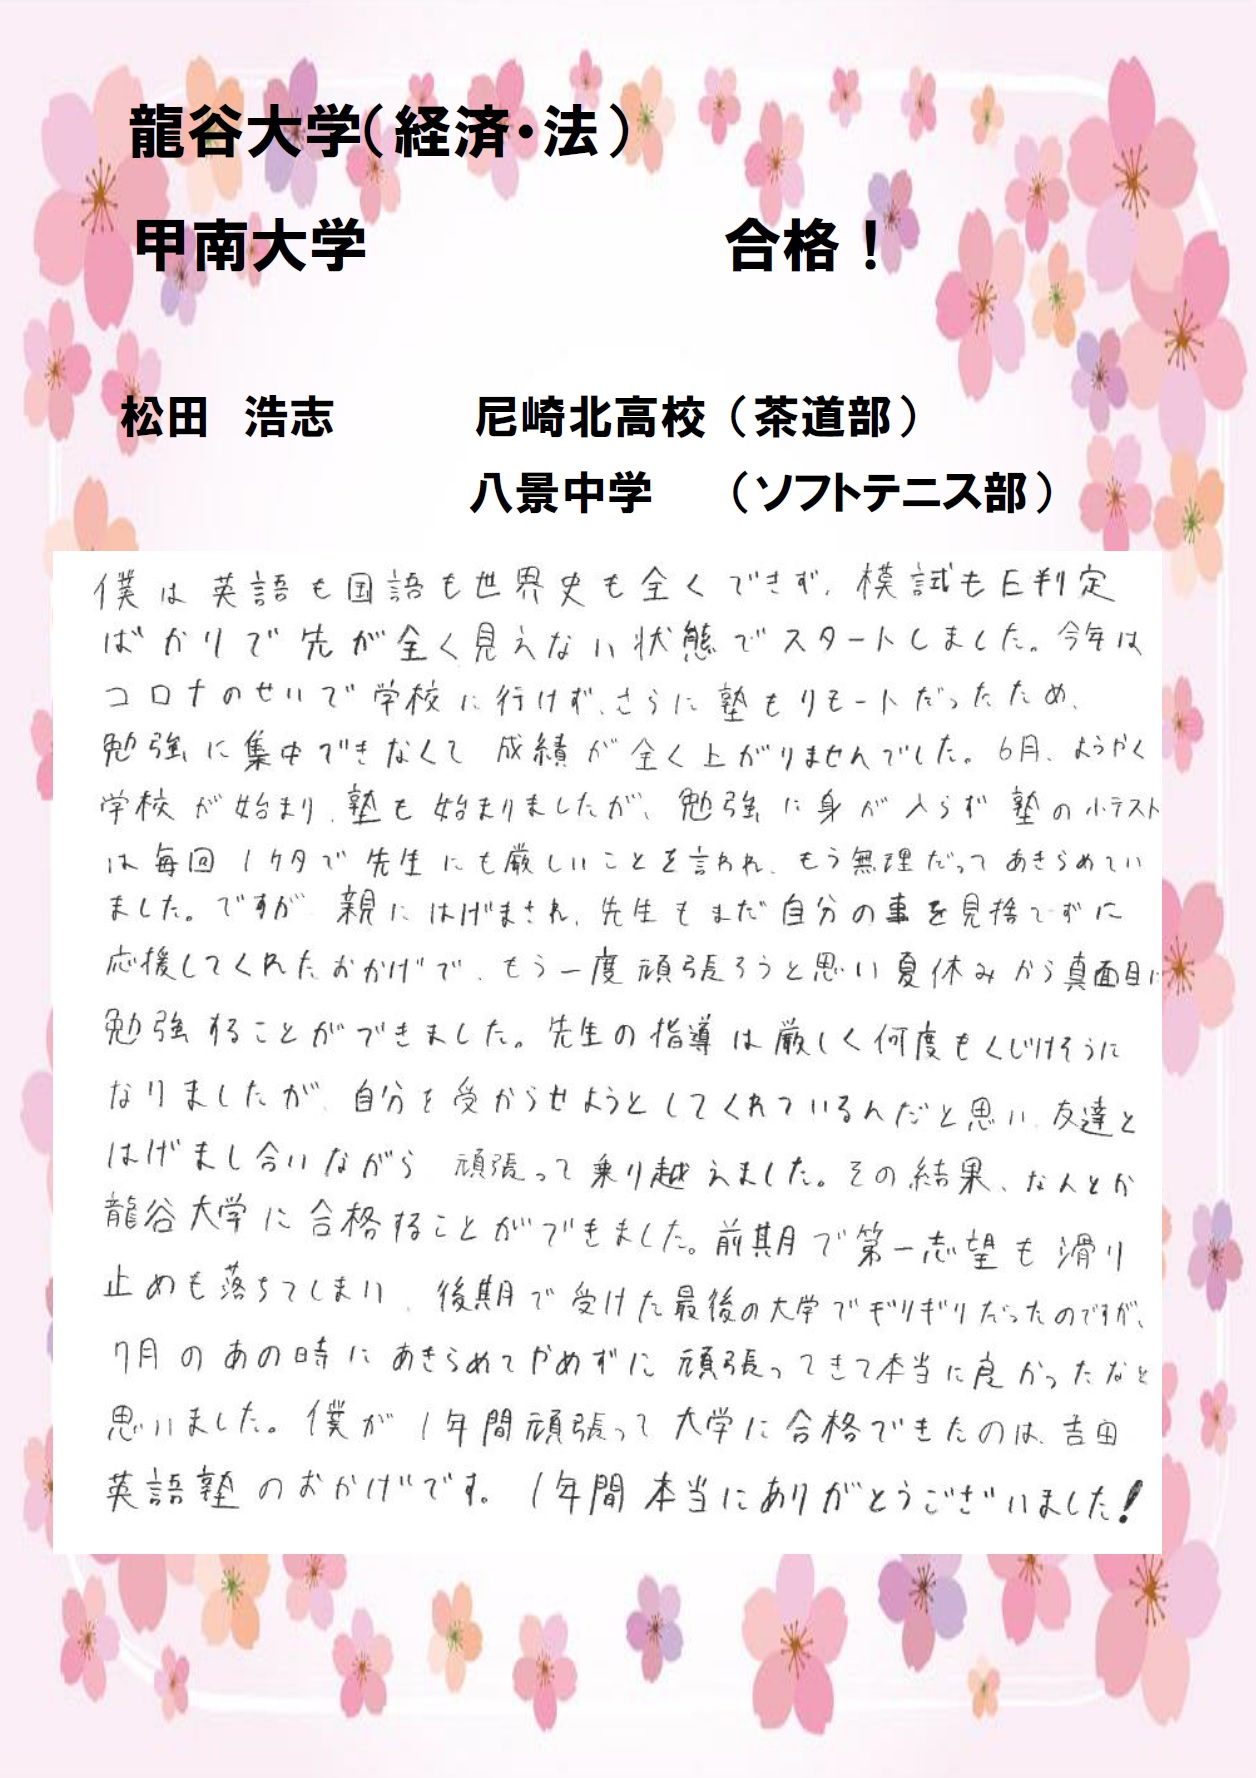 龍谷大学（経済・法）
甲南大学　合格！
松田　浩志　尼崎北高校（茶道部）
八景中学　（ソフトテニス部）
僕は英語も国語も世界史も全くできず、模試もE判定
ばかりで先が全く見えない状態でスタートしました。今年は
コロナのせいで学校に行けず、さらに塾もリモートだったため、
勉強に集中できなくて成績が全く上がりませんでした。6月、ようやく
学校が始まり、塾も始まりましたが、勉強に身が入らず塾の小テスト
は毎回1ケタで先生にも厳しいことを言われ、もう無理だってあきらめてい
ました。ですが、親にはげまされ、先生もまだ自分の事を見捨てずに
応援してくれたおかげで、もう一度頑張ろうと思い夏休みから真面目に
勉強することができました。先生の指導は厳しく何度もくじけそうに
なりましたが、自分を受からせようとしてくれているんだと思い、友達と
はげまし合いながら頑張って乗り越えました。その結果、なんとか
龍谷大学に合格することができました。前期で第一志望も滑り
止めも落ちてしまい、後期で受けた最後の大学でギリギリだったのですが、
7月のあの時にあきらめてやめずに頑張ってきて本当に良かったなと
思いました。僕が1年間頑張って大学に合格できたのは、吉田
英語塾のおかげです。1年間本当にありがとうございました！